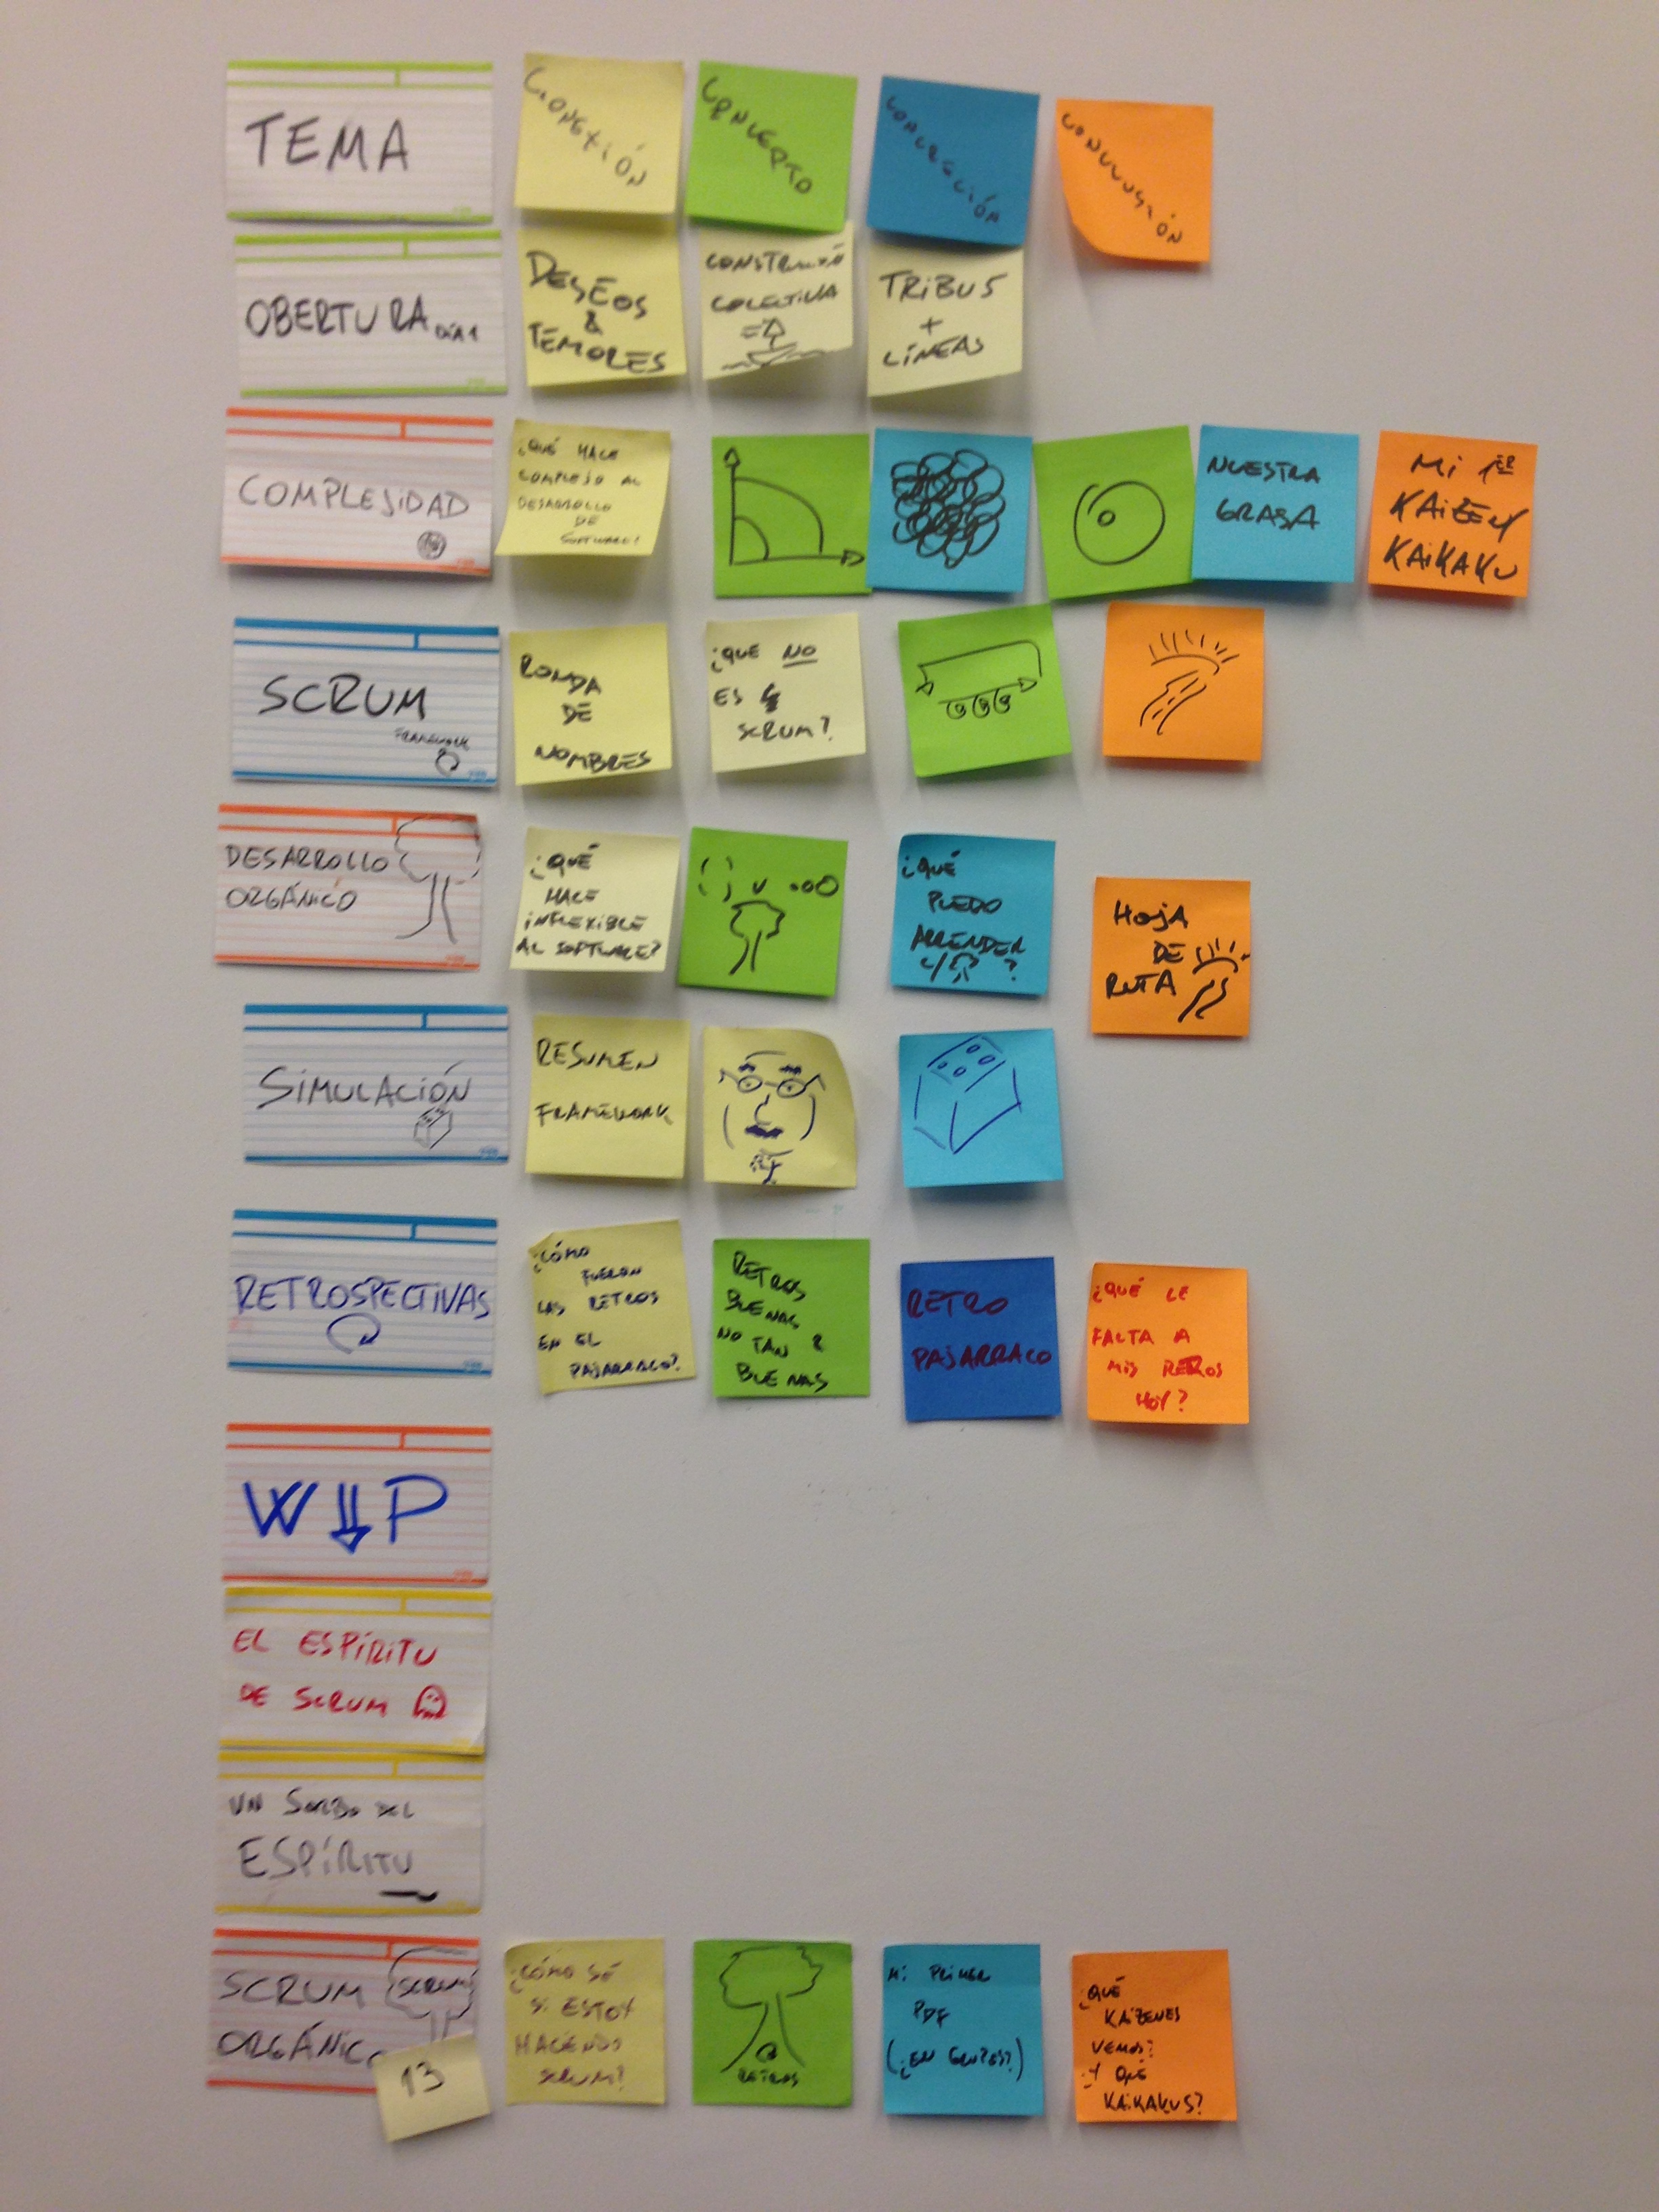 TEMA
CONEXIÓN
CONCEPTO
CONCRECIÓN
CONCLUSIÓN
OBERTURA DÍA 1
DESEOS
&
TEMORES
CONSTRUCCIÓN
COLECTIVA
TRIBUS
+
LÍNEAS
COMPLEJIDAD
¿QUÉ HACE
COMPLEJO AL
DESARROLLO
DE
SOFTWARE?
NUESTRA
GRASA
Mi 1ER
KAIZEN
KAIKAKU
SCRUM
FRAMEWORK
RONDA
DE
NOMBRES
¿QUE NO
ES
SCRUM?
DESARROLLO
ORGÁNICO
¿QUÉ
HACE
INFLEXIBLE
AL SOFTWARE?
¿QUÉ
PUEDO
APRENDER
C/ ?
HOJA
DE
RUTA
SIMULACIÓN
RESUMEN
FRAMEWORK
RETROSPECTIVAS
¿CÓMO
FUERON
LAS RETROS
EN EL
PAJARRACO?
RETROS
BUENAS
NO TAN &
BUENAS
RETRO
PAJARRACO
¿QUÉ LE
FALTA A
MIS RETROS
HOY?
W P
EL ESPÍRITU
DE SCRUM
UN SORBO DEL
ESPÍRITU
SCRUM
ORGÁNICO
SCRUM
13
¿CÓMO SÉ
SI ESTOY
HACIENDO
SCRUM?
RETROS
MI PRIMER
PDF
(¿EN GRUPOS?)
¿QUÉ
KAIZENES
VEMOS?
¿Y QUÉ
KAIKAKUS?